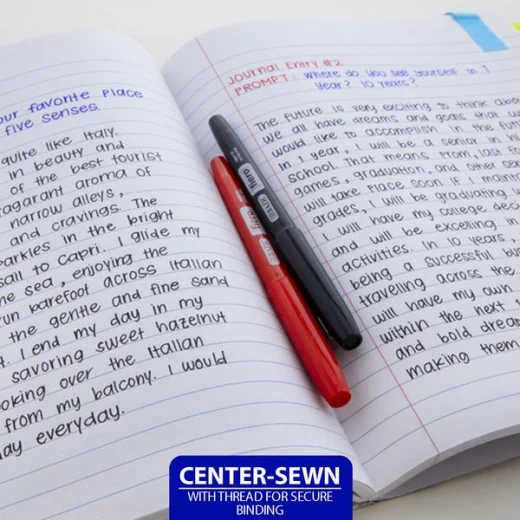 our favorite place
five senses.
quite like Italy.
in beauty and
of the best tourist
ragarant aroma of
narrow alleys,
and cravings. The
arkles in the bright
sail to Capri. I glide my
he sea, enjoying the
run barefoot across Italian
the gentle and fine sand
I end my day in my
savoring sweet hazelnut
ooking over the Italian
from my balcony. I would
day everyday.
Journal Entry #2
PROMPT: Where do you see yourself in 1
year? 10 years?
The future is very exciting to think abou
We all have dreams and goals that w
would like to accomplish in the futu
in 1 year, I will be a senior in hi
school. That means prom, last fo
games, graduation, and other se
will take place soon. If I maint
grades, I will be graduating w
I will have my college deci
and will be excelling in
activities. In 10 years,
being a successful bu
traveling across the
will have my own
within the next
and bold dream
making them
fiero
CENTER-SEWN
WITH THREAD FOR SECURE
BINDING